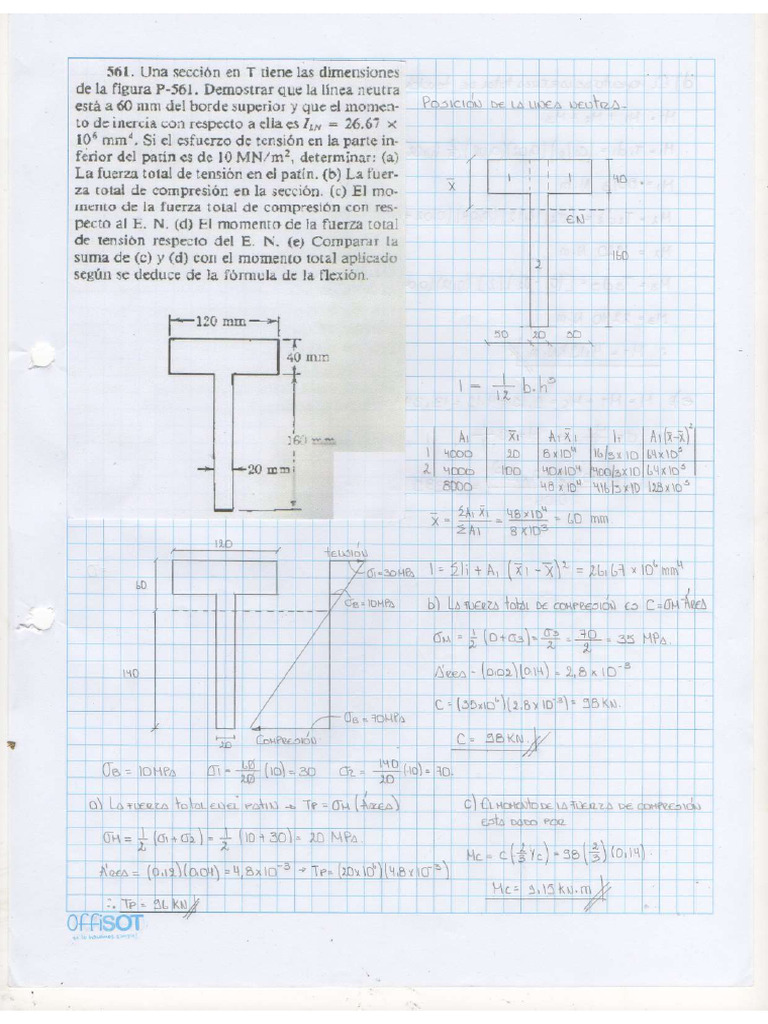 561. Una sección en T tiene las dimensiones
de la figura P-561. Demostrar que la línea neutra
está a 60 mm del borde superior y que el momen-
to de inercia con respecto a ella es I_LN = 26.67 ×
10⁶ mm⁴. Si el esfuerzo de tensión en la parte in-
ferior del patín es de 10 MN/m², determinar: (a)
La fuerza total de tensión en el patín. (b) La fuer-
za total de compresión en la sección. (c) El mo-
mento de la fuerza total de compresión con res-
pecto al E. N. (d) El momento de la fuerza total
de tensión respecto del E. N. (e) Comparar la
suma de (c) y (d) con el momento total aplicado
según se deduce de la fórmula de la flexión.
120 mm
40 mm
160 mm
20 mm
POSICIÓN DE LA LINEA NEUTRA.
X̄
1 1
40
EN
2
160
50 20 50
I = 1/12 b.h³
A1 X̄1 A1 X̄1 I1 A1(X̄-X̄)²
1 4000 20 8x10⁴ 16/3x10 64x10⁵
2 4000 100 40x10⁴ 400/3x10 64x10⁵
8000 48x10⁴ 416/3x10 128x10⁵
X̄ = ΣA1 X̄1 / ΣA1 = 48x10⁴ / 8x10³ = 60 mm
I = ΣIi + A1 (X̄1 - X̄)² = 26.67 x 10⁶ mm⁴
120
60
140
20
TENSIÓN
σ1=30MPa
σB=10MPa
σB=70MPa
COMPRESIÓN
b) LA FUERZA TOTAL DE COMPRESIÓN ES C=σM ÁREAS
σM = 1/2 (0+σ3) = σ3/2 = 70/2 = 35 MPa.
ÁREA - (0,02)(0,14) = 2,8 x 10⁻³
C = (35x10⁶)(2.8x10⁻³) = 98 KN.
C = 98 KN.
σB = 10MPa σ1 = 60/20 (10) = 30 σ2 = 140/20 (10) = 70.
a) LA FUERZA TOTAL EN EL PATIN → TP = σM (ÁREAS)
σM = 1/2 (σ1+σ2) = 1/2 (10+30) = 20 MPa.
ÁREAS = (0,12)(0,04) = 4,8x10⁻³ → TP = (20x10⁶)(4.8x10⁻³)
∴ TP = 96 KN
c) EL MOMENTO DE LA FUERZA DE COMPRESIÓN
ESTA DADO POR
Mc = C (2/3 Yc) = 98 (2/3) (0,14).
Mc = 9.15 KN.m
OFFiSOT